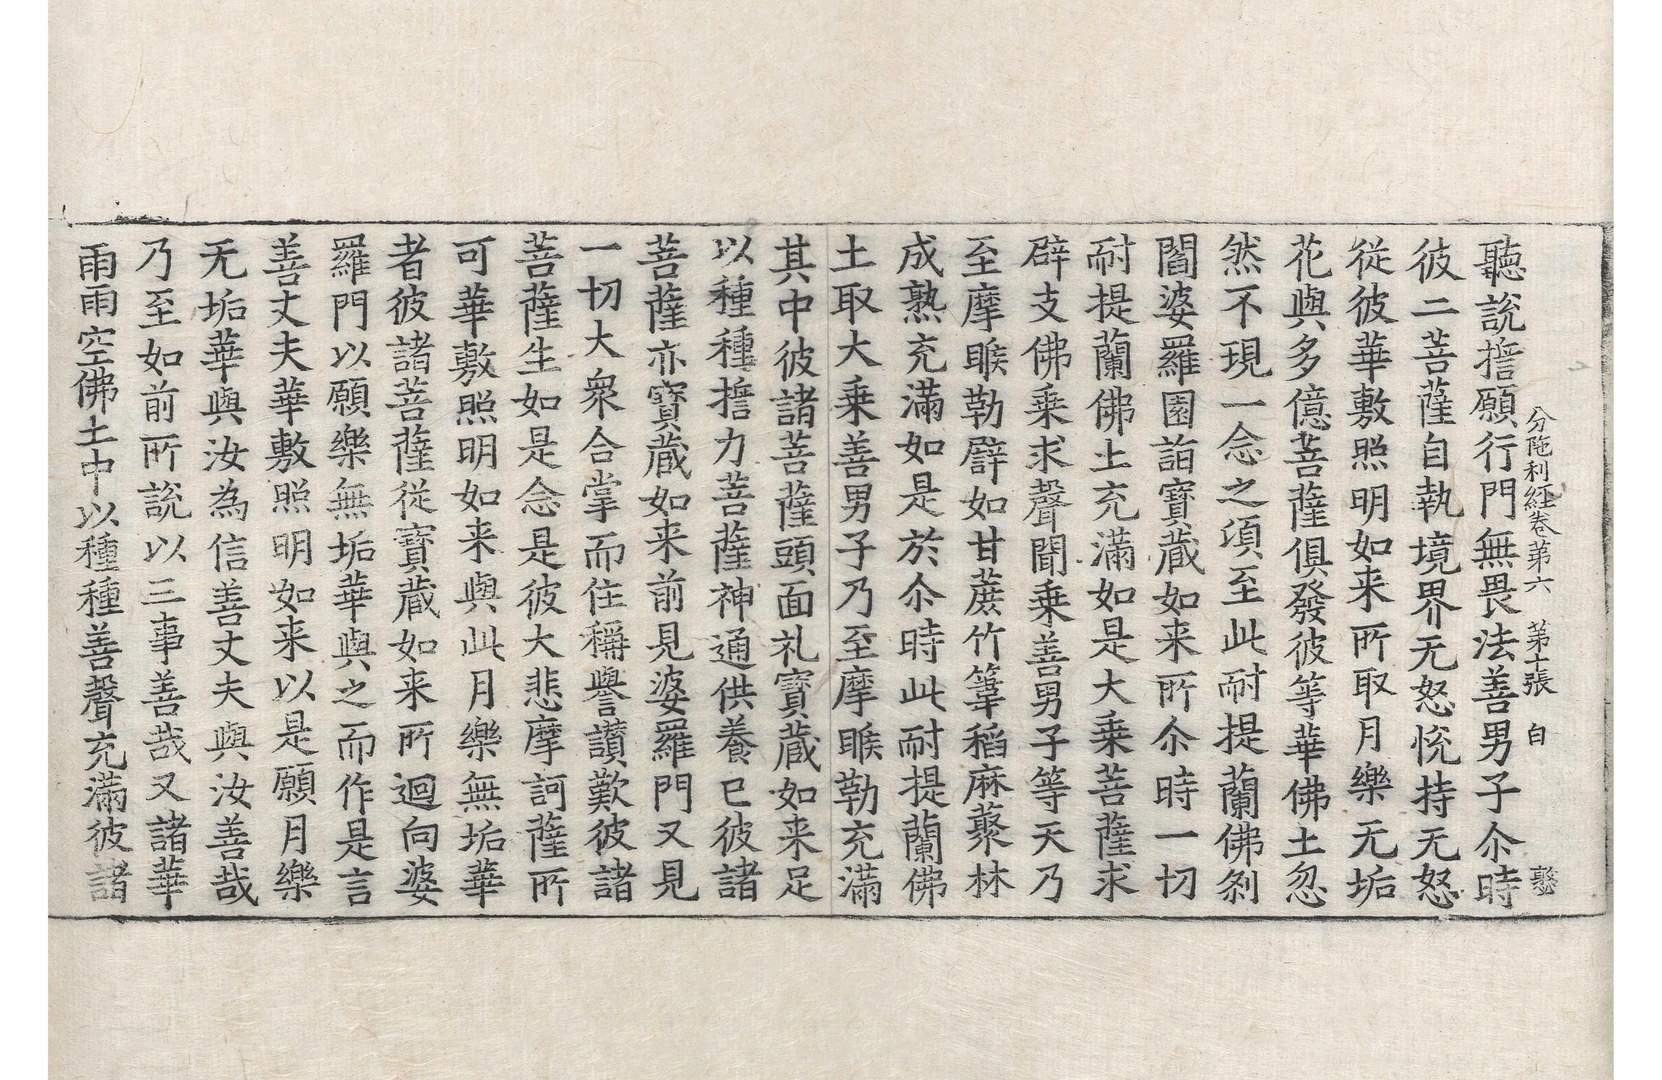 分陁利經卷第六　第十張　白
聽說擔願行門無畏法善男子尒時
彼二菩薩自執境界无怒恱持无怒
從彼華敷照明如来所取月樂无垢
花與多億菩薩俱發彼等華佛土忽
然不現一念之須至此耐提蘭佛剎
閻婆羅園詣寶藏如来所尒時一切
耐提蘭佛土充滿如是大乘菩薩求
辟支佛乘求聲聞乘善男子等天乃
至摩睺勒譬如甘蔗竹葦稻麻藂林
成熟充滿如是於尒時此耐提蘭佛
土取大乘善男子乃至摩睺勒充滿
其中彼諸菩薩頭面礼寶藏如来足
以種種擔力菩薩神通供養已彼諸
菩薩亦寶藏如来前見婆羅門又見
一切大衆合掌而住稱譽讃歎彼諸
菩薩生如是念是彼大悲摩訶薩所
可華敷照明如来與此月樂無垢華
者彼諸菩薩從寶藏如来所迴向婆
羅門以願樂無垢華與之而作是言
善丈夫華敷照明如来以是願月樂
无垢華與汝為信善丈夫與汝善哉
乃至如前所說以三事善哉又諸華
雨雨空佛土中以種種善聲充滿彼諸